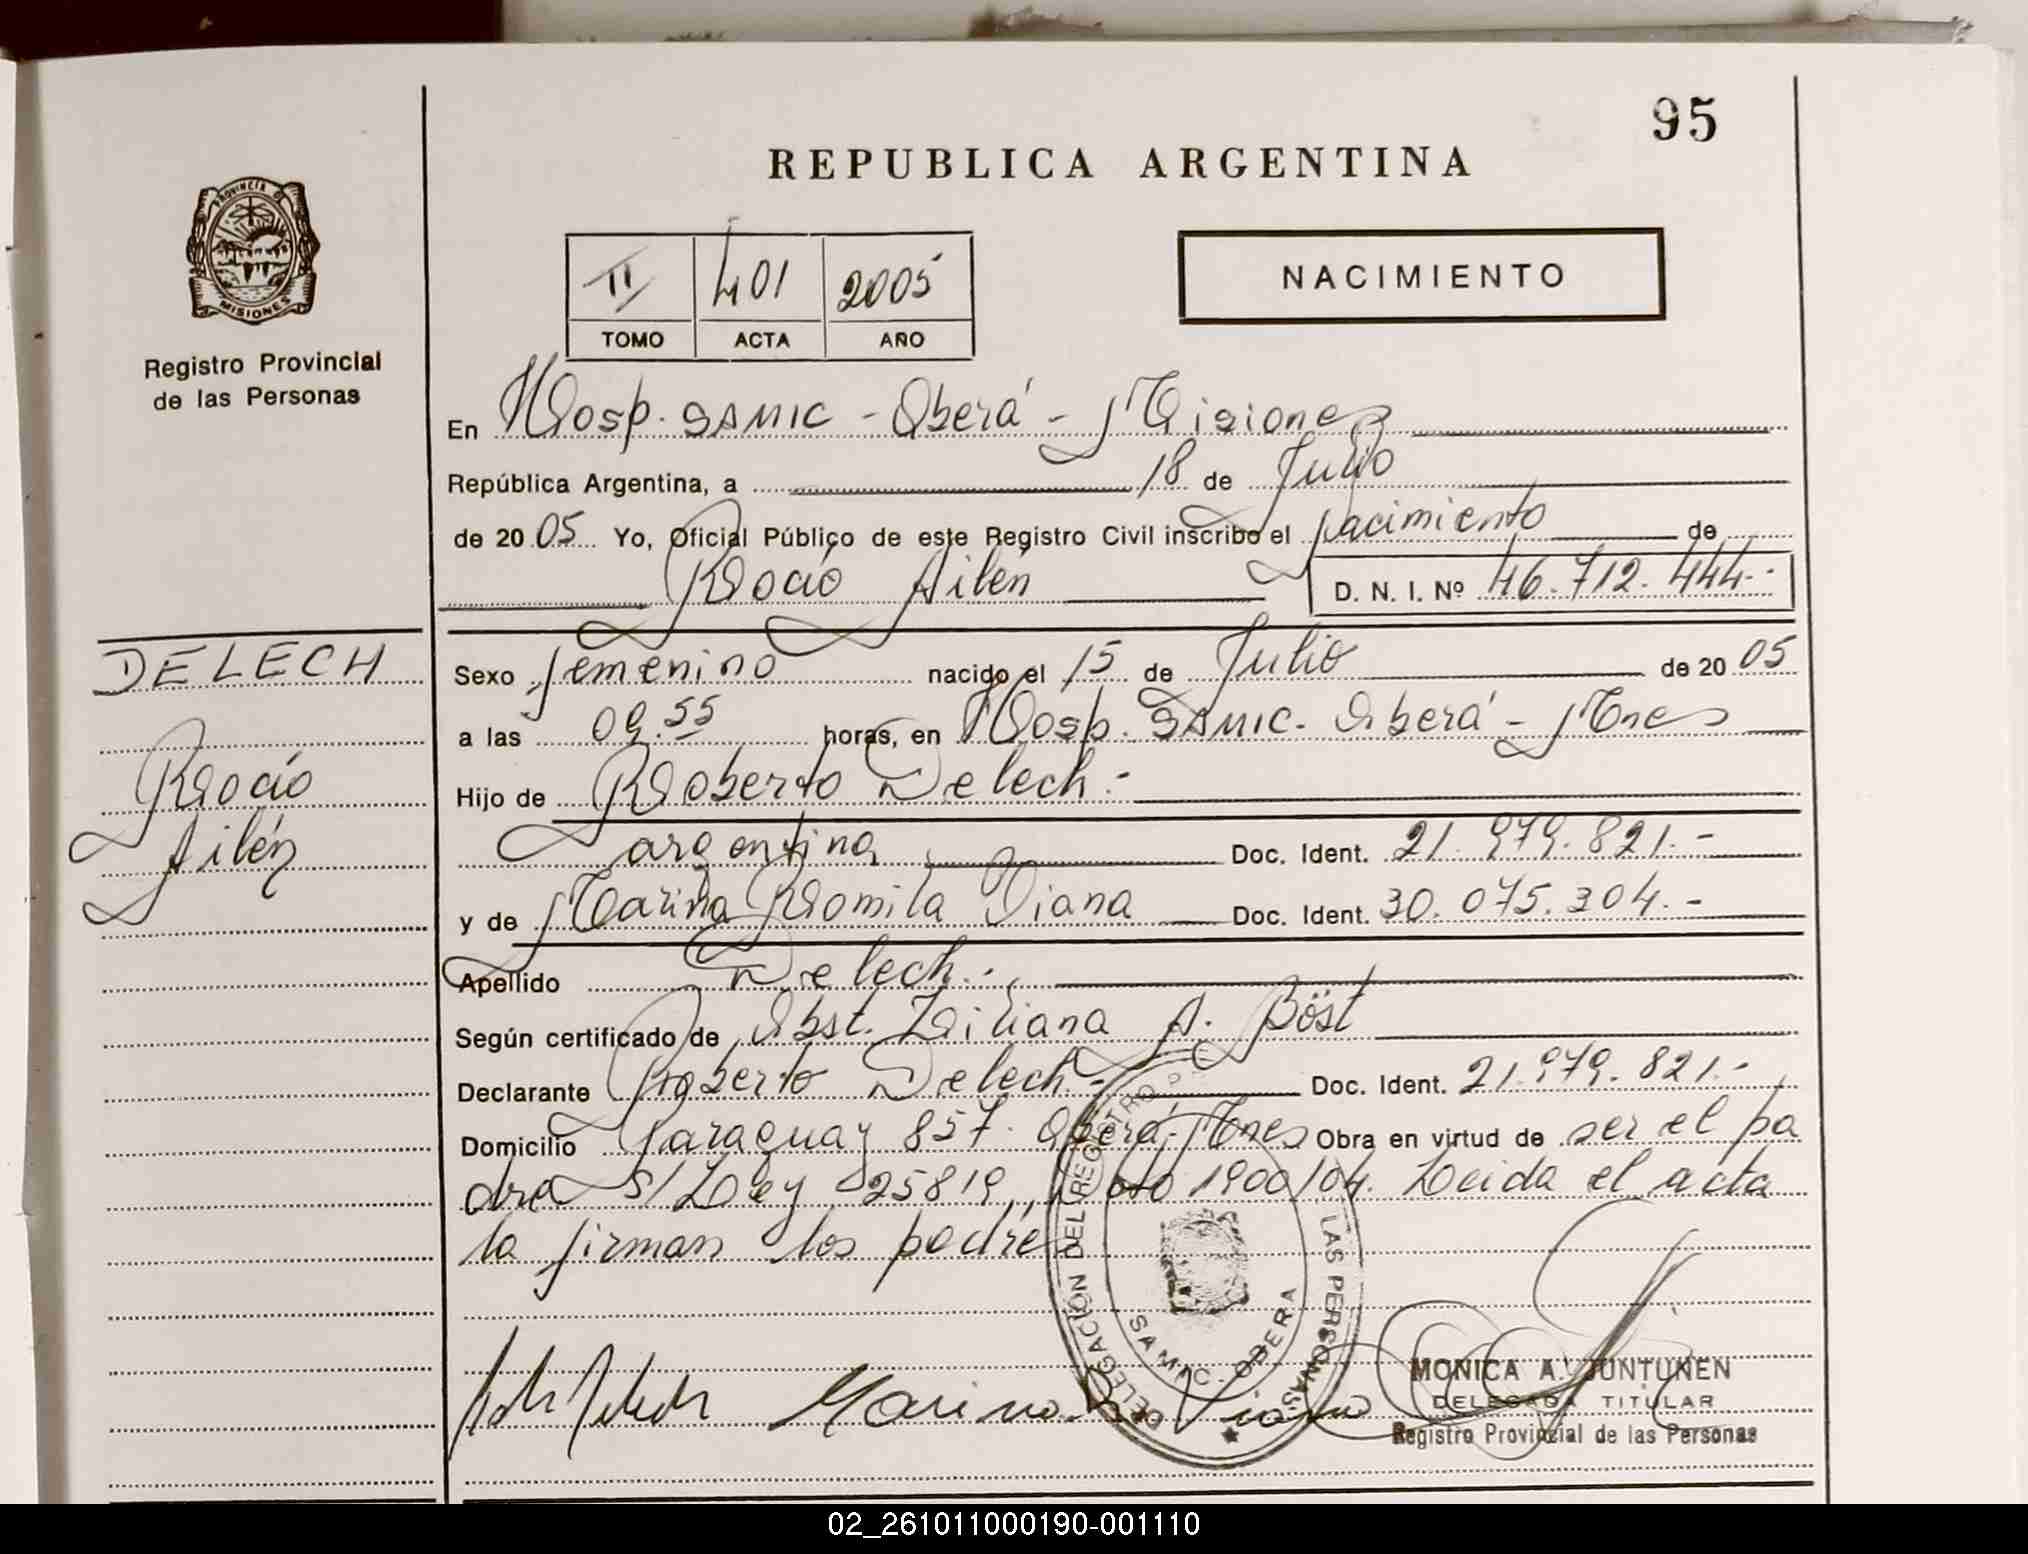 95
REPUBLICA ARGENTINA
PROVINCIA DE
MISIONES
Registro Provincial
de las Personas
II 401 2005
TOMO ACTA AÑO
NACIMIENTO
En Hosp. SAMIC - Oberá - Misiones
República Argentina, a 18 de Julio
de 2005 Yo, Oficial Público de este Registro Civil inscribo el nacimiento de
Rocío Ailén D. N. I. Nº 46.712.444.-
DELECH
Rocío
Ailén
Sexo femenino nacido el 15 de Julio de 2005
a las 09.55 horas, en Hosp. SAMIC - Oberá - Mnes
Hijo de Roberto Delech.-
argentina Doc. Ident. 21.979.821.-
y de Marina Romila Viana Doc. Ident. 30.075.304.-
Apellido Delech.-
Según certificado de Obst. Liliana A. Böst
Declarante Roberto Delech.- Doc. Ident. 21.979.821.-
Domicilio Paraguay 857. Oberá, Mnes Obra en virtud de ser el pa
dre S/Ley 25819, Dto 1900/04. Leida el acta
la firman los padres
DELEGACIÓN DEL REGISTRO LAS PERSONAS
SAMIC. OBERA
Marina R. Viana
MONICA A. JUNTUNEN
DELEGADA TITULAR
Registro Provincial de las Personas
02_261011000190-001110